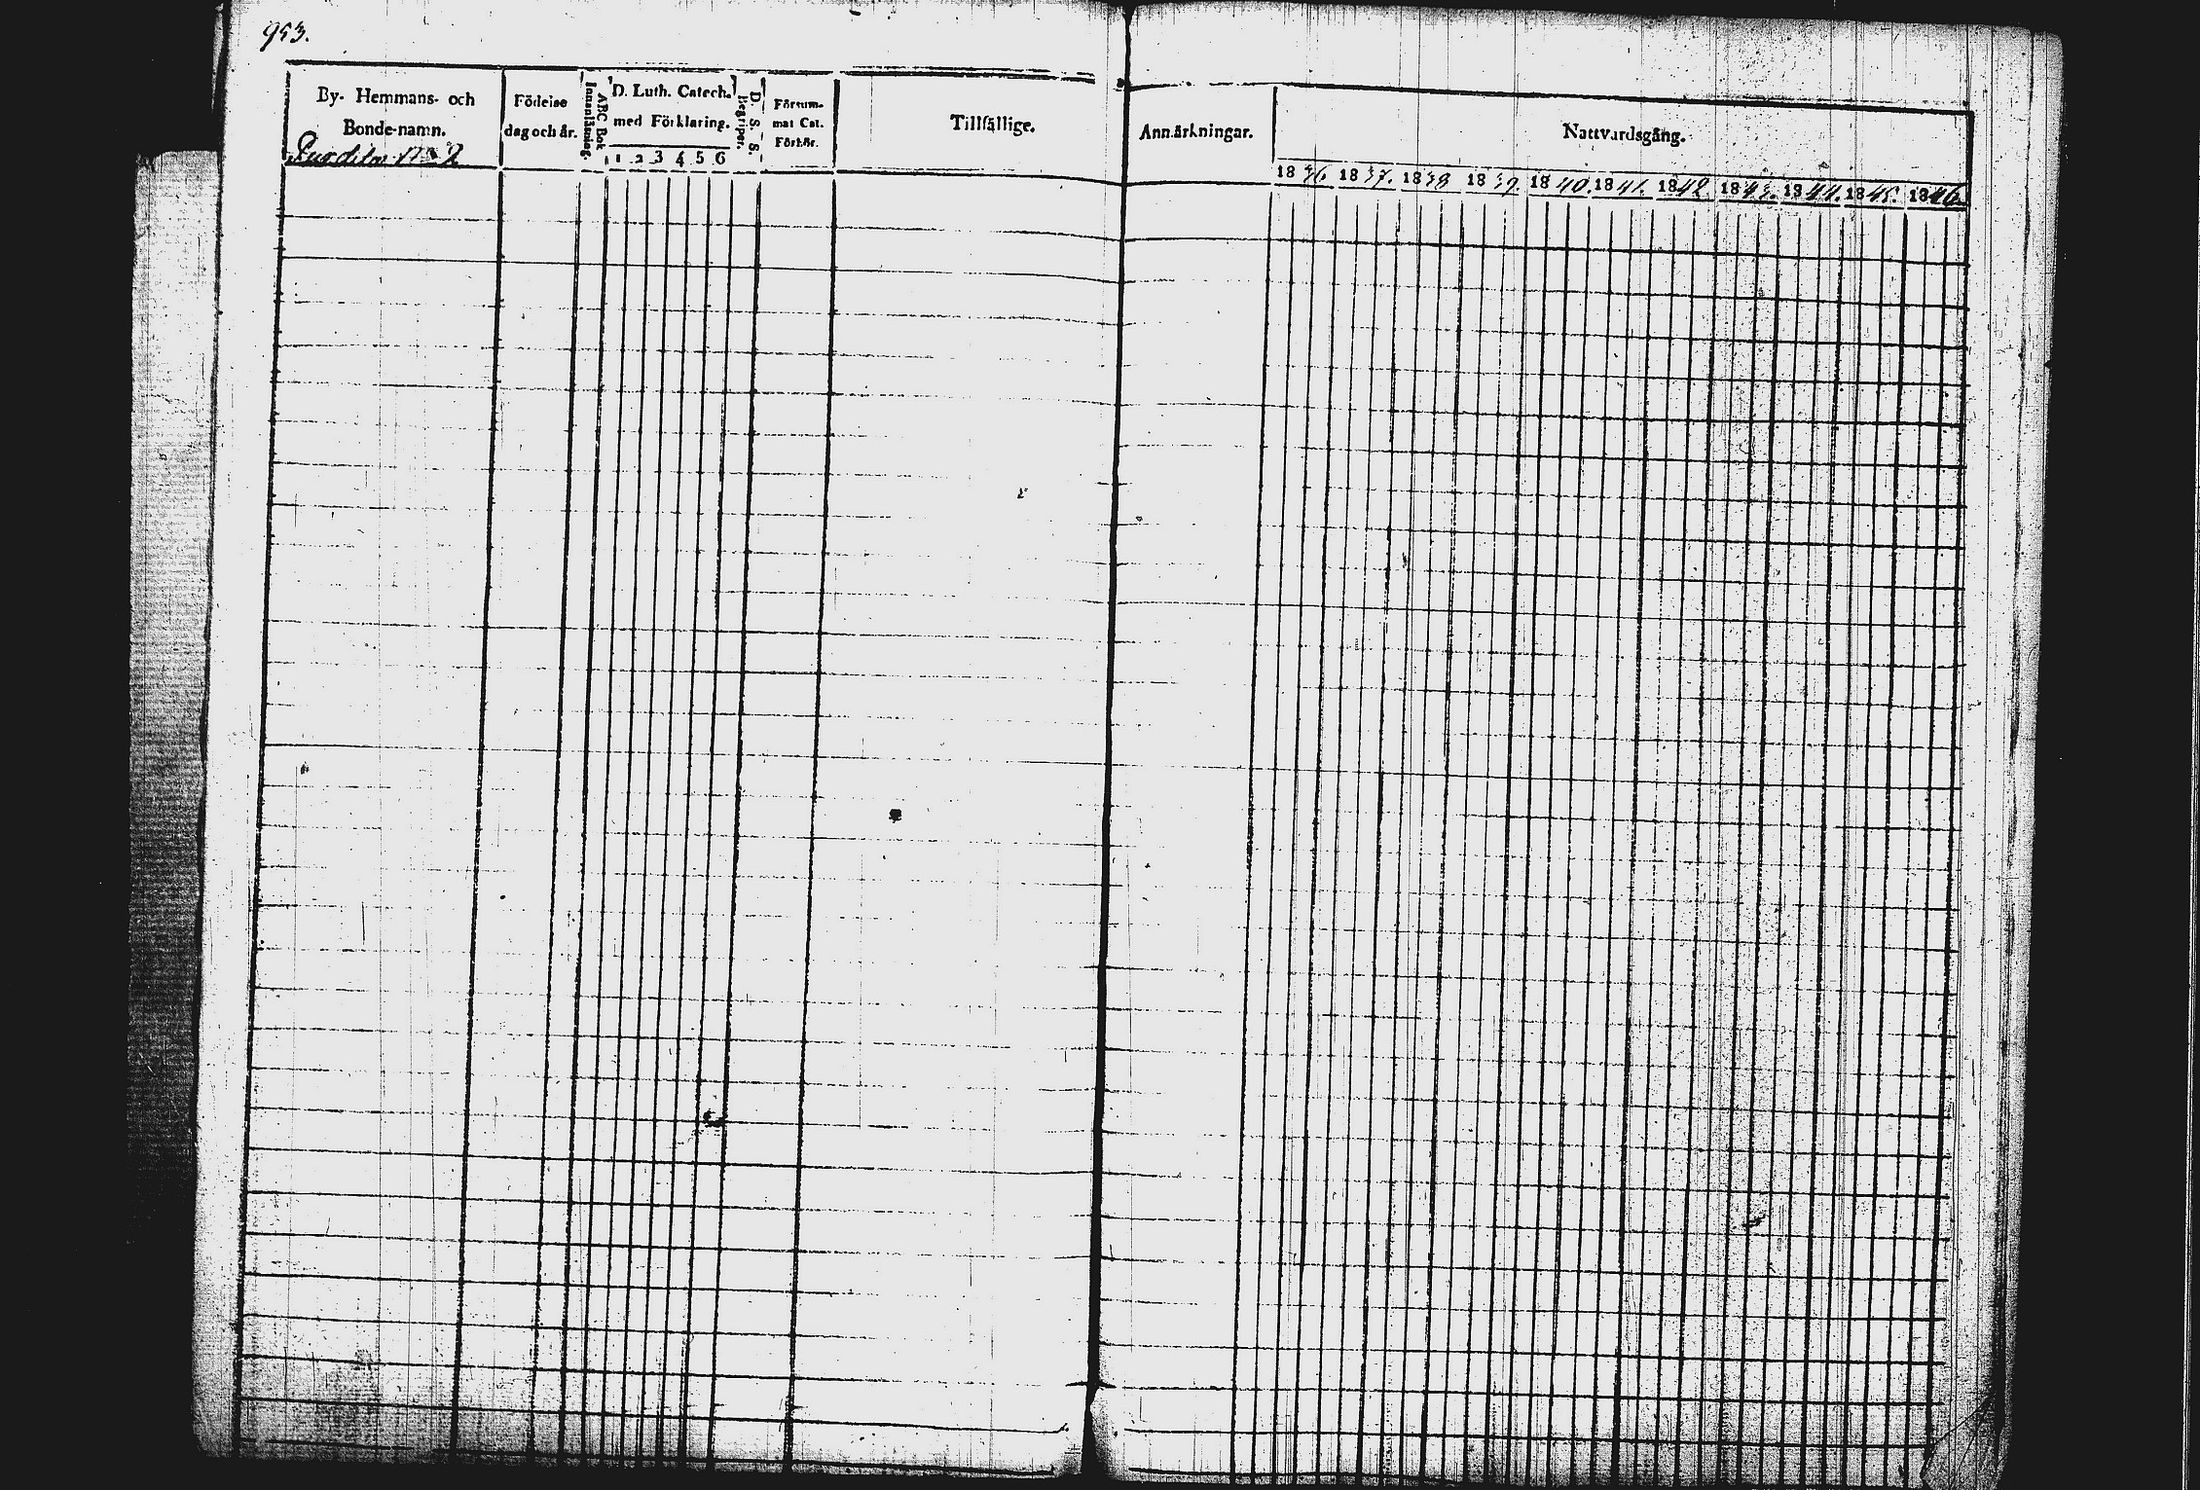 953.
By- Hemmans- och
Bonde-namn.
Födelse
dag och år.
ABC Bok
Innanläsning.
D. Luth. Catech.
med Förklaring.
1 2 3 4 5 6
D. S. S.
Begriper.
Försum-
mat Cat.
Förhör.
Tillfällige.
Anmärkningar.
Nattvardsgång.
1836. 1837. 1838 1839. 1840. 1841. 1842 1843. 1844. 1845. 1846.